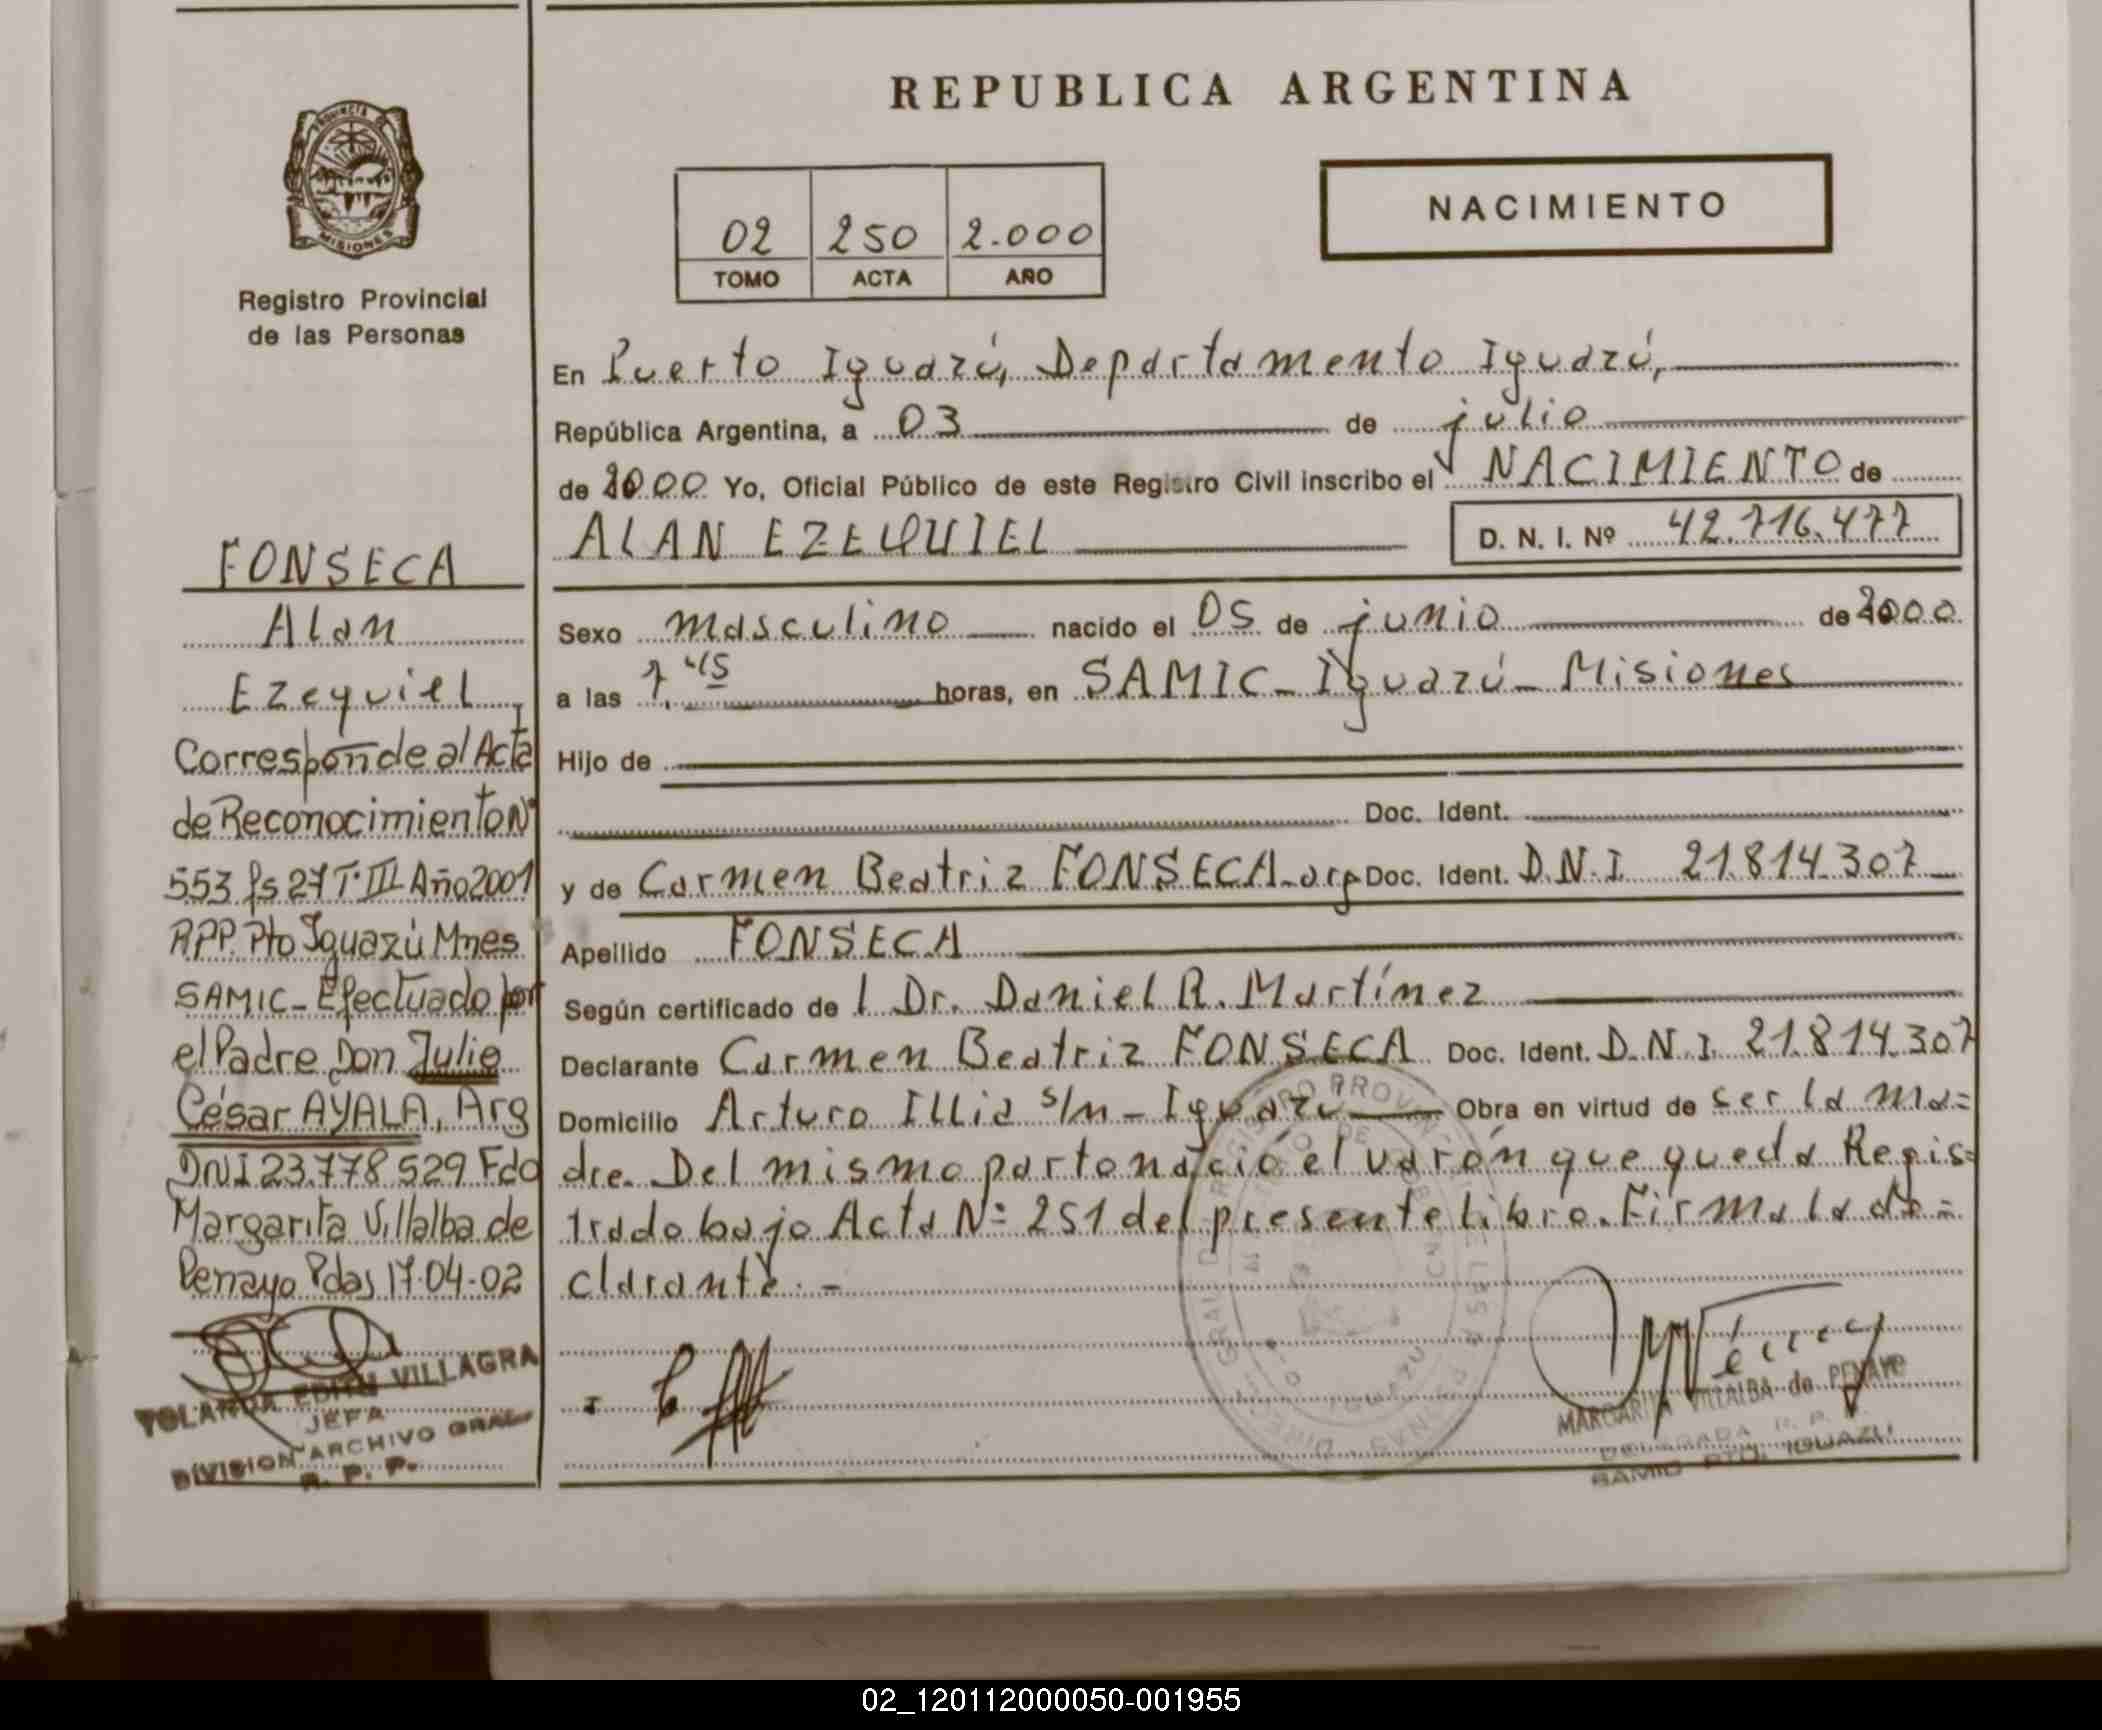 REPUBLICA ARGENTINA
PROVINCIA DE
MISIONES
Registro Provincial
de las Personas
02 250 2.000
TOMO ACTA AÑO
NACIMIENTO
En Puerto Iguazú, Departamento Iguazú,
República Argentina, a 03 de julio
de 2000 Yo, Oficial Público de este Registro Civil inscribo el NACIMIENTO de
ALAN EZEQUIEL D. N. I. Nº 42.716.477
Sexo masculino nacido el 05 de junio de 2000
a las 7.45 horas, en SAMIC - Iguazú - Misiones
Hijo de
Doc. Ident.
y de Carmen Beatriz FONSECA - arg Doc. Ident. D.N.I. 21.814.307
Apellido FONSECA
Según certificado de l Dr. Daniel R. Martínez
Declarante Carmen Beatriz FONSECA Doc. Ident. D.N.I. 21.814.307
Domicilio Arturo Illia s/n - Iguazú Obra en virtud de ser la ma=
dre. Del mismo parto nació el varón que queda Regis=
trado bajo Acta Nº 251 del presente libro. Firma la de=
clarante. -
FONSECA
Alan
Ezequiel
Corresponde al Acta
de Reconocimiento Nº
553 fs 27 Tº III Año 2001
RPP. Pto Iguazú Mnes
SAMIC - Efectuado por
el Padre Don Julio
César AYALA, Arg
DNI 23.778.529 Fdo
Margarita Villalba de
Penayo Pdas 17-04-02
YOLANDA EDITH VILLAGRA
JEFA
DIVISION ARCHIVO GRAL
R. P. P.
MARGARITA VILLALBA de PENAYO
DELEGADA R. P. P.
SAMIC PTO. IGUAZU
02_120112000050-001955